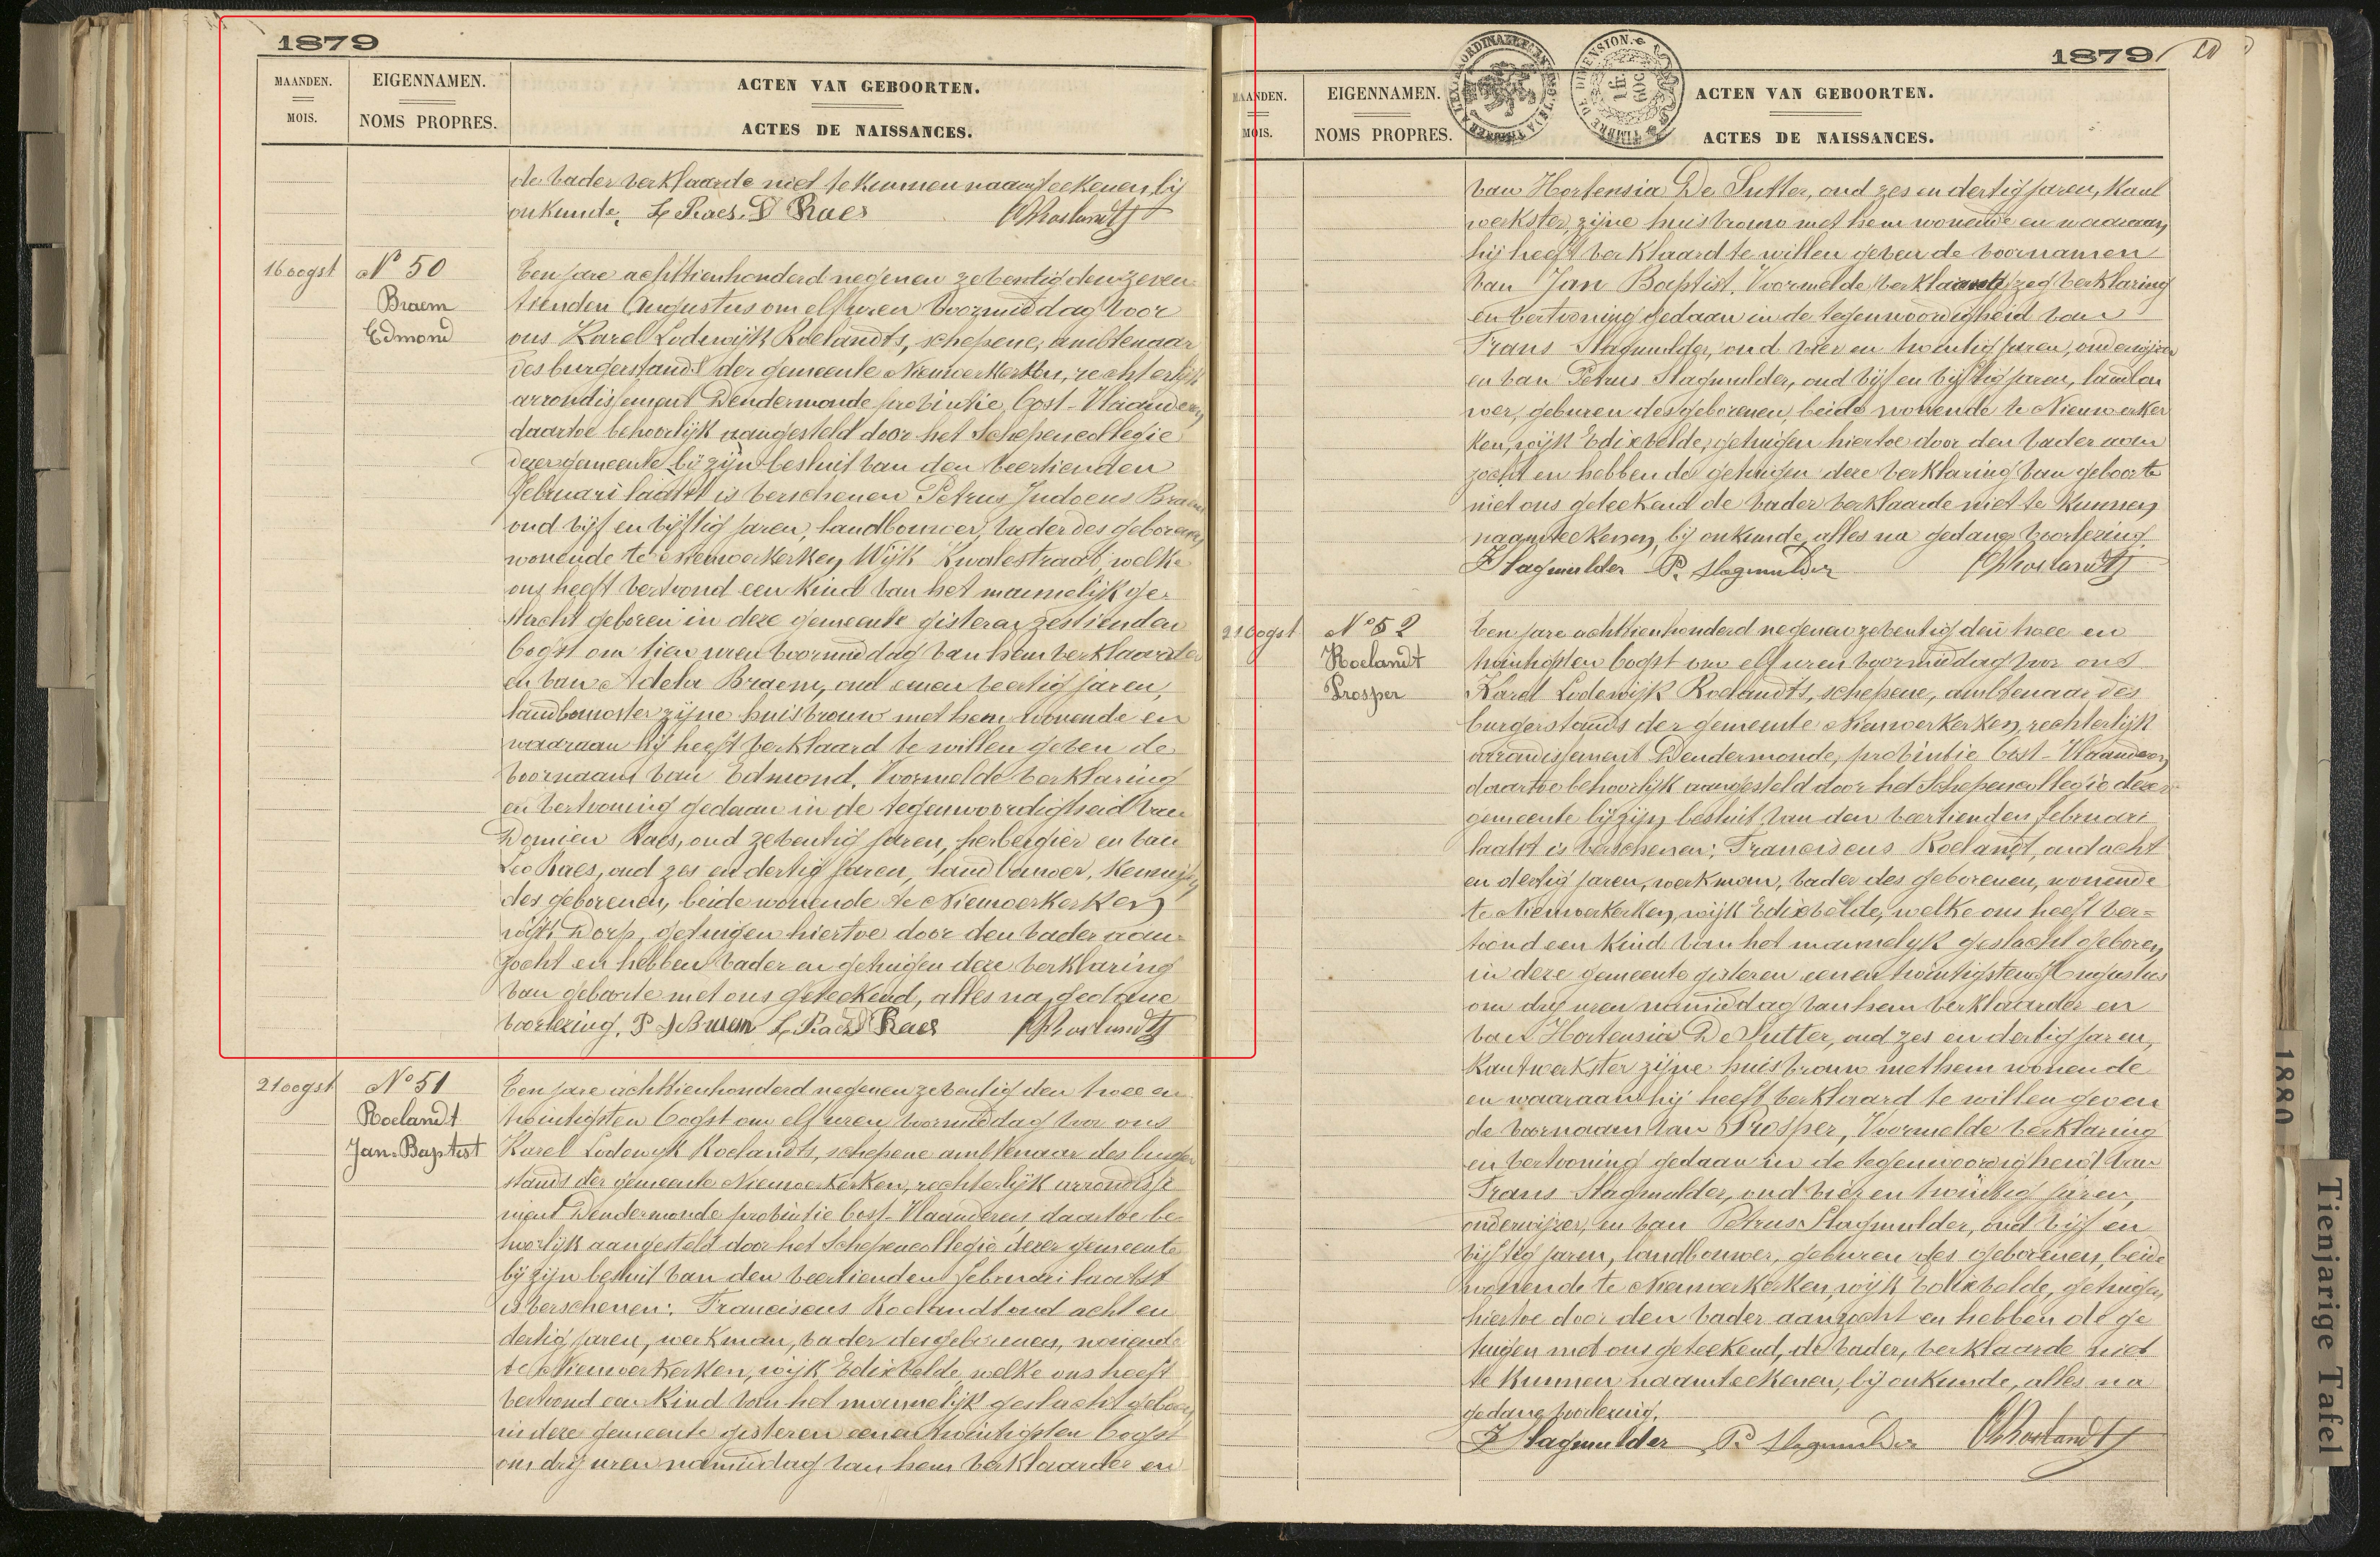 1879
MAANDEN.
MOIS.
EIGENNAMEN.
NOMS PROPRES.
ACTEN VAN GEBOORTEN.
ACTES DE NAISSANCES.
de vader verklaarde niet te kunnen naamteekenen, bij
onkunde. L Raes. D Raes
16 oogst
N° 50
Braem
Edmond
Een jare achttienhonderd negenen zeventig den zeven-
tienden Augustus om elf uren voormiddag voor
ons Karel Lodewijk Roelandts, schepene, ambtenaar
des burgerstands der gemeente Nieuwerkerken, rechterlijk
arrondissement Dendermonde provintie Oost-Vlaanderen
daartoe behoorlijk aangesteld door het Schepencollegie
dezer gemeente bij zijn besluit van den veertienden
februari laatst is verschenen Petrus Judocus Braem
oud vijf en vijftig jaren, landbouwer, vader des geborenen,
wonende te Nieuwerkerken, Wijk Kwalestraat, welke
ons heeft vertoond een kind van het mannelijk ge-
slacht geboren in deze gemeente gisteren zestienden
Oogst om tien uren voormiddag van hem verklaarder
en van Adela Braem, oud eenen veertig jaren,
landbouwster zijne huisvrouw met hem wonende en
waaraan hij heeft verklaard te willen geven de
voornaam van Edmond. Voormelde verklaring
en vertooning gedaan in de tegenwoordigheid van
Domien Raes, oud zeventig jaren, herbergier en van
Leo Raes, oud zes en dertig jaren, landbouwer, kennissen
des geborenen, beide wonende te Nieuwerkerken
wijk Dorp, getuigen hiertoe door den vader aan-
zocht en hebben vader en getuigen deze verklaring
van geboorte met ons geteekend, alles na gedane
voorlezing. P J Braem L Raes D Raes
21 oogst
N° 51
Roelandt
Jan-Baptist
Een jare achttienhonderd negenen zeventig den twee en
twintigsten Oogst om elf uren voormiddag voor ons
Karel Lodewyk Roelandts, schepene ambtenaar des burger
stands der gemeente Nieuwerkerken, rechterlijk arrondisse
ment Dendermonde provintie Oost-Vlaanderen daartoe be-
hoorlijk aangesteld door het Schepencollegie dezer gemeente
bij zijn besluit van den veertienden februari laatst
is verschenen: Franciscus Roelandt oud acht en
dertig jaren, werkman, vader des geborenen, wonende
te Nieuwerkerken, wijk Edixvelde, welke ons heeft
vertoond een kind van het mannelijk geslacht geboren
in deze gemeente gisteren eenen twintigsten Oogst
om drij uren namiddag van hem verklaarder en
1879
MAANDEN.
MOIS.
EIGENNAMEN.
NOMS PROPRES.
ACTEN VAN GEBOORTEN.
ACTES DE NAISSANCES.
van Hortensia De Sutter, oud zes en dertig jaren, kant
werkster, zijne huisvrouw met hem wonende en waaraan
hij heeft verklaard te willen geven de voornamen
van Jan Baptist. Voormelde verklaring
en vertooning gedaan in de tegenwoordigheid van
Frans Slagmulder, oud vier en twintig jaren, onderwijzer
en van Petrus Slagmulder, oud vijf en vijftig jaren, landbou
wer, geburen des geborenen, beide wonende te Nieuwerker
ken, wijk Edixvelde, getuigen hiertoe door den vader aan
zocht en hebben de getuigen deze verklaring van geboorte
met ons geteekend de vader verklaarde niet te kunnen
naamteekenen, bij onkunde, alles na gedane voorlezing.
F Slagmulder P. Slagmulder
21 Oogst
N° 52
Roelandt
Prosper
Een jare achttienhonderd negenen zeventig den twee en
twintigsten Oogst om elf uren voormiddag voor ons
Karel Lodewijk Roelandts, schepene, ambtenaar des
burgerstands der gemeente Nieuwerkerken, rechterlijk
arrondissement Dendermonde, provintie Oost-Vlaanderen
daartoe behoorlijk aangesteld door het Schepencollegie dezer
gemeente bij zijn besluit van den veertienden februari
laatst is verschenen: Franciscus Roelandt, oud acht
en dertig jaren, werkman, vader des geborenen, wonende
te Nieuwerkerken, wijk Edixvelde, welke ons heeft ver=
toond een kind van het mannelijk geslacht geboren
in deze gemeente gisteren eenen twintigsten Augustus
om drij uren namiddag van hem verklaarder en
van Hortensia De Sutter, oud zes en dertig jaren,
kantwerkster zijne huisvrouw met hem wonende
en waaraan hij heeft verklaard te willen geven
de voornaam van Prosper, Voormelde verklaring
en vertooning gedaan in de tegenwoordigheid van
Frans Slagmulder, oud vier en twintig jaren,
onderwijzer, en van Petrus Slagmulder, oud vijf en
vijftig jaren, landbouwer, geburen des geborenen, beide
wonende te Nieuwerkerken, wijk Edixvelde, getuigen
hiertoe door den vader aanzocht en hebben de ge
tuigen met ons geteekend, de vader, verklaarde niet
te kunnen naamteekenen, bij onkunde, alles na
gedane voorlezing.
F Slagmulder P. Slagmulder
1880
Tienjarige Tafel